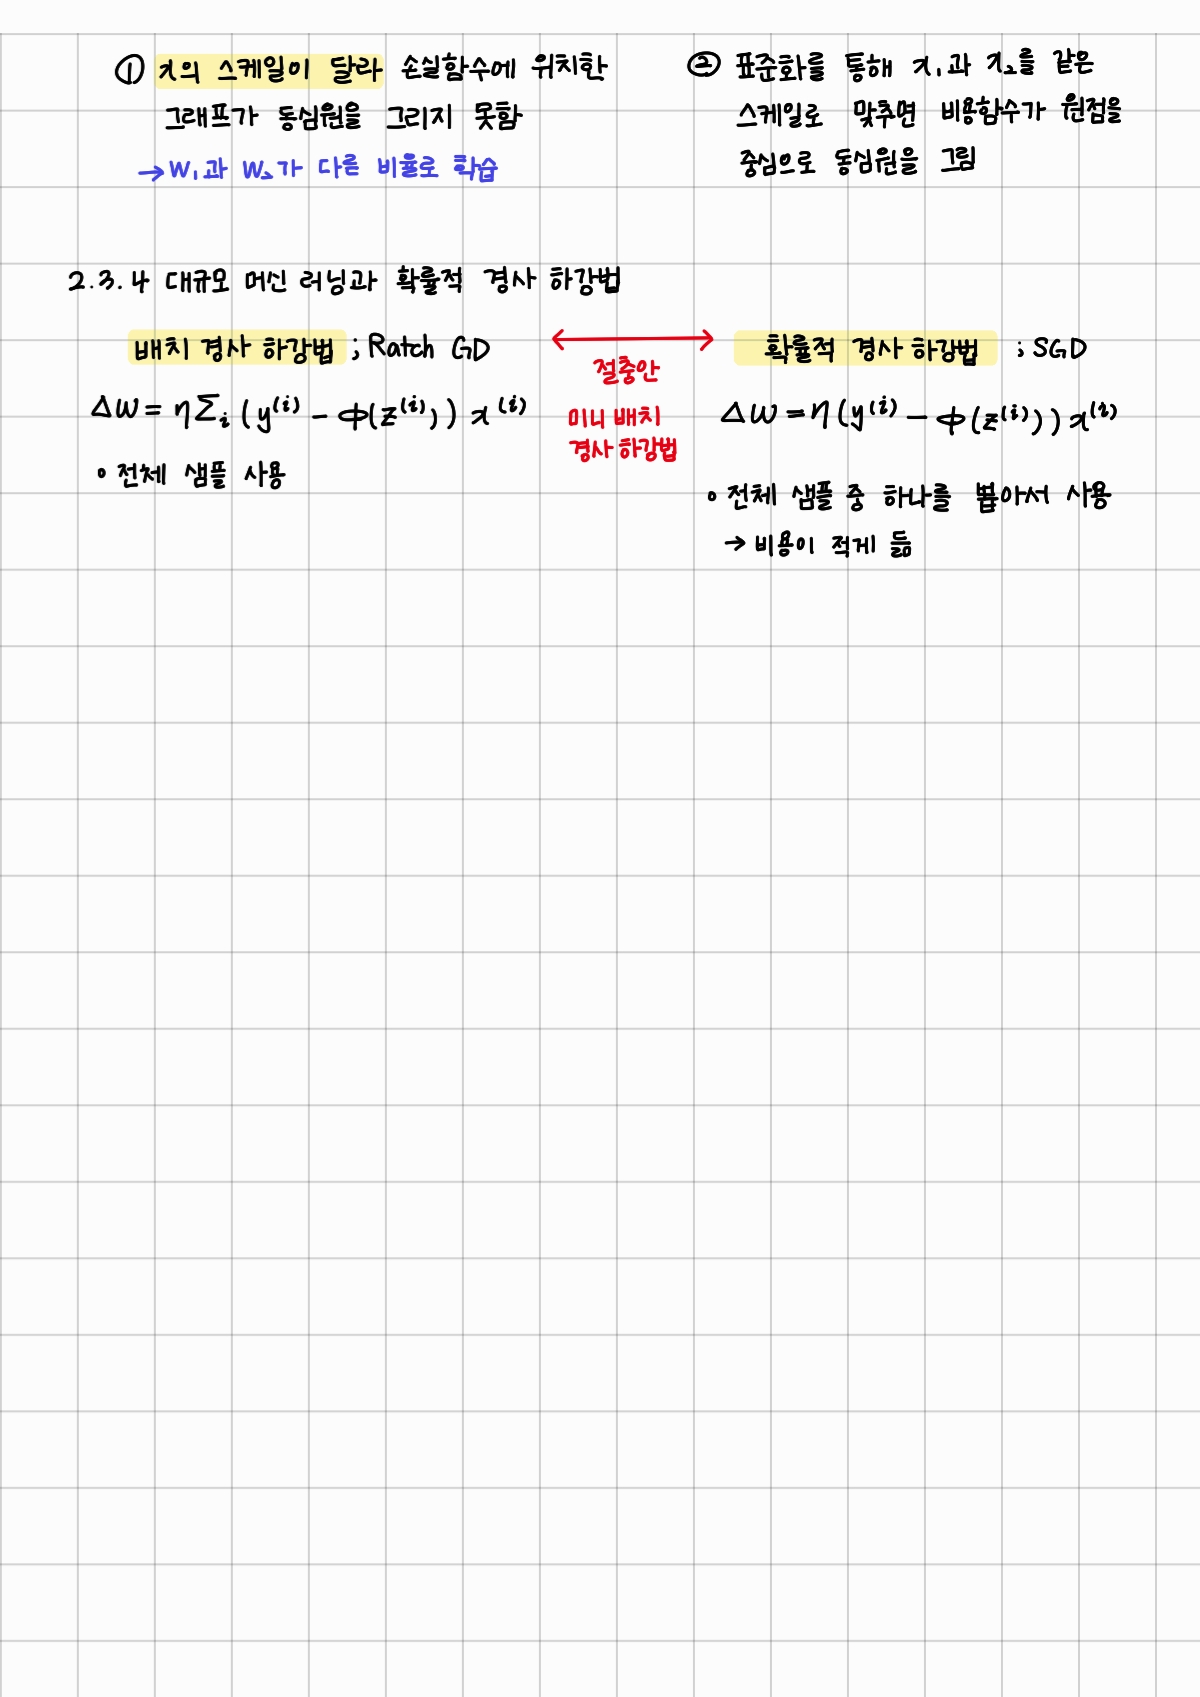 ① x의 스케일이 달라 손실함수에 위치한
그래프가 동심원을 그리지 못함
→ W₁과 W₂가 다른 비율로 학습
② 표준화를 통해 x₁과 x₂를 같은
스케일로 맞추면 비용함수가 원점을
중심으로 동심원을 그림
2.3.4 대규모 머신 러닝과 확률적 경사 하강법
배치 경사 하강법 ; Ratch GD
ΔW = η Σᵢ (y⁽ⁱ⁾ - φ(z⁽ⁱ⁾)) x⁽ⁱ⁾
• 전체 샘플 사용
절충안
미니 배치
경사 하강법
확률적 경사 하강법 ; SGD
ΔW = η (y⁽ⁱ⁾ - φ(z⁽ⁱ⁾)) x⁽ⁱ⁾
• 전체 샘플 중 하나를 뽑아서 사용
→ 비용이 적게 듦